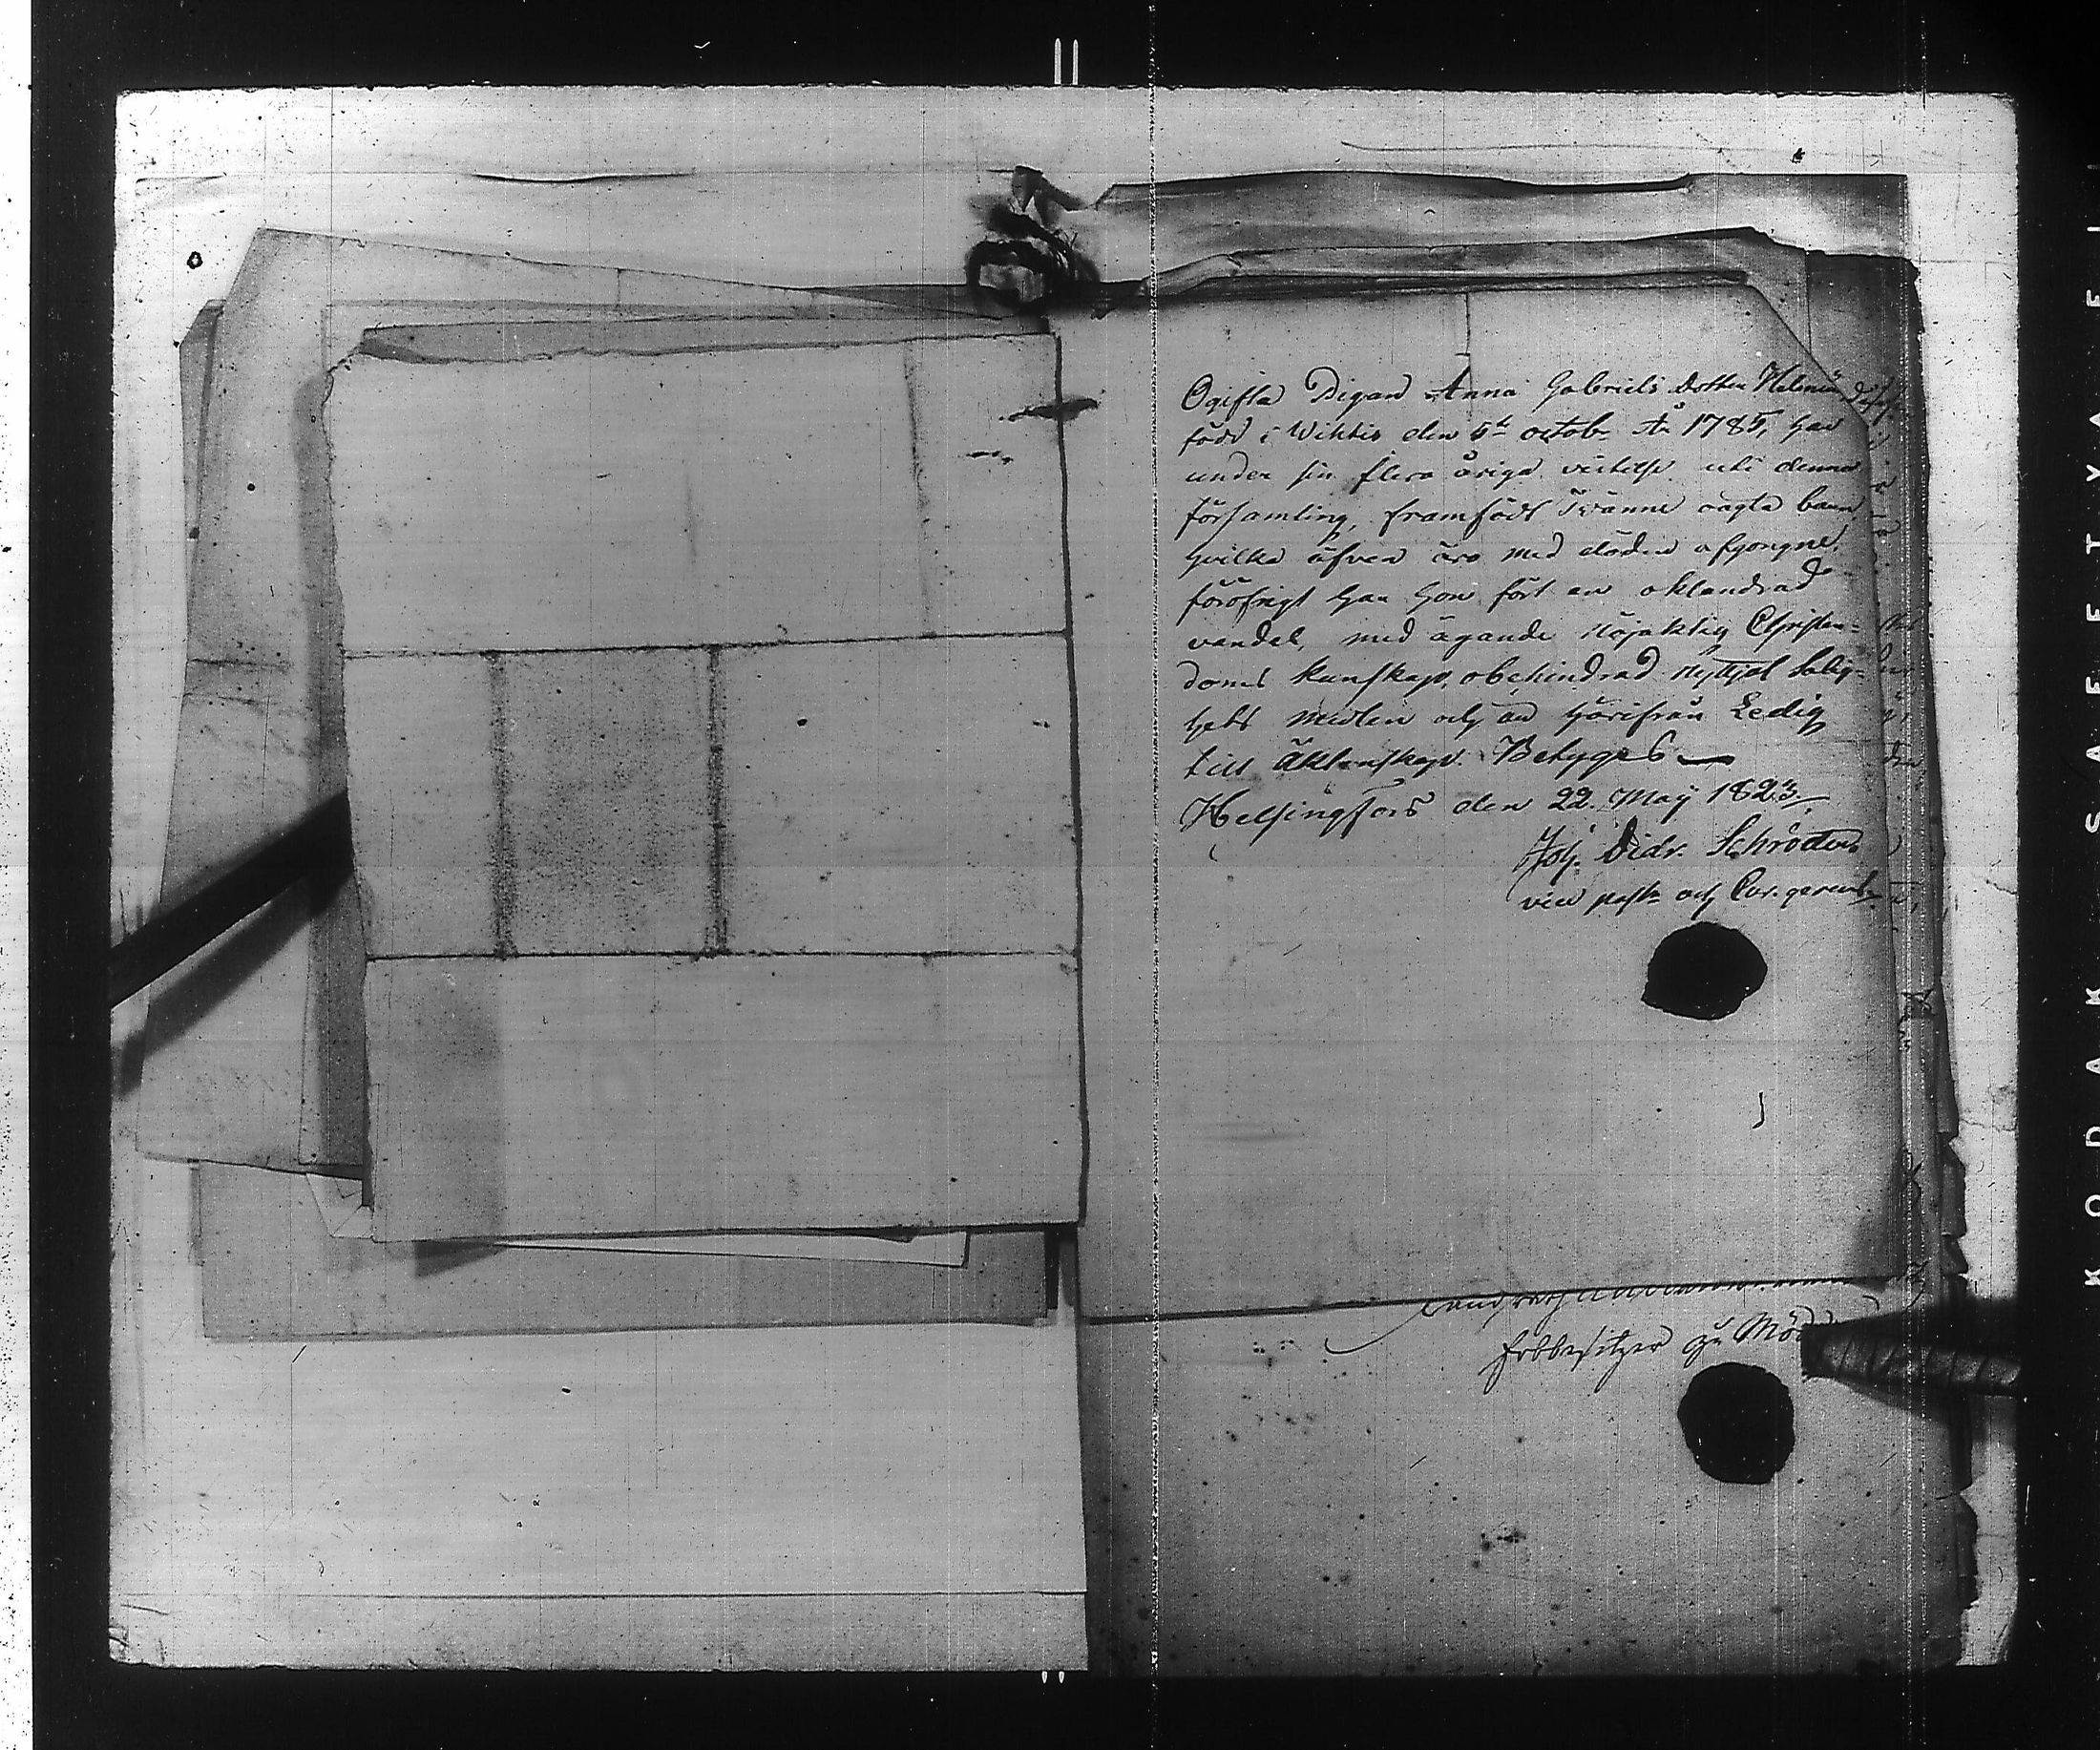 Ogifta Pigan Anna Gabriels dotter Helenius
född i Wichtis den 5te octob. År 1785, har
under sin flera åriga vistelse uti denna
församling, framfödt Tvänne oägta barn,
hvilka äfven äro med döden afgongne,
föröfrigt har hon fört en oklandrad
vandel, med ägande nöjaktig Christen=
doms kunskap, obehindrad nyttjat salig=
hets medlen och är härifrån Ledig
till äktenskap. Betyges
Helsingfors den 22. Maÿ 1823
Joh. Didr. Schröder
vice past. och Cur. gerens
Erbbesitzer zu
KODAK SAFETY A FIL